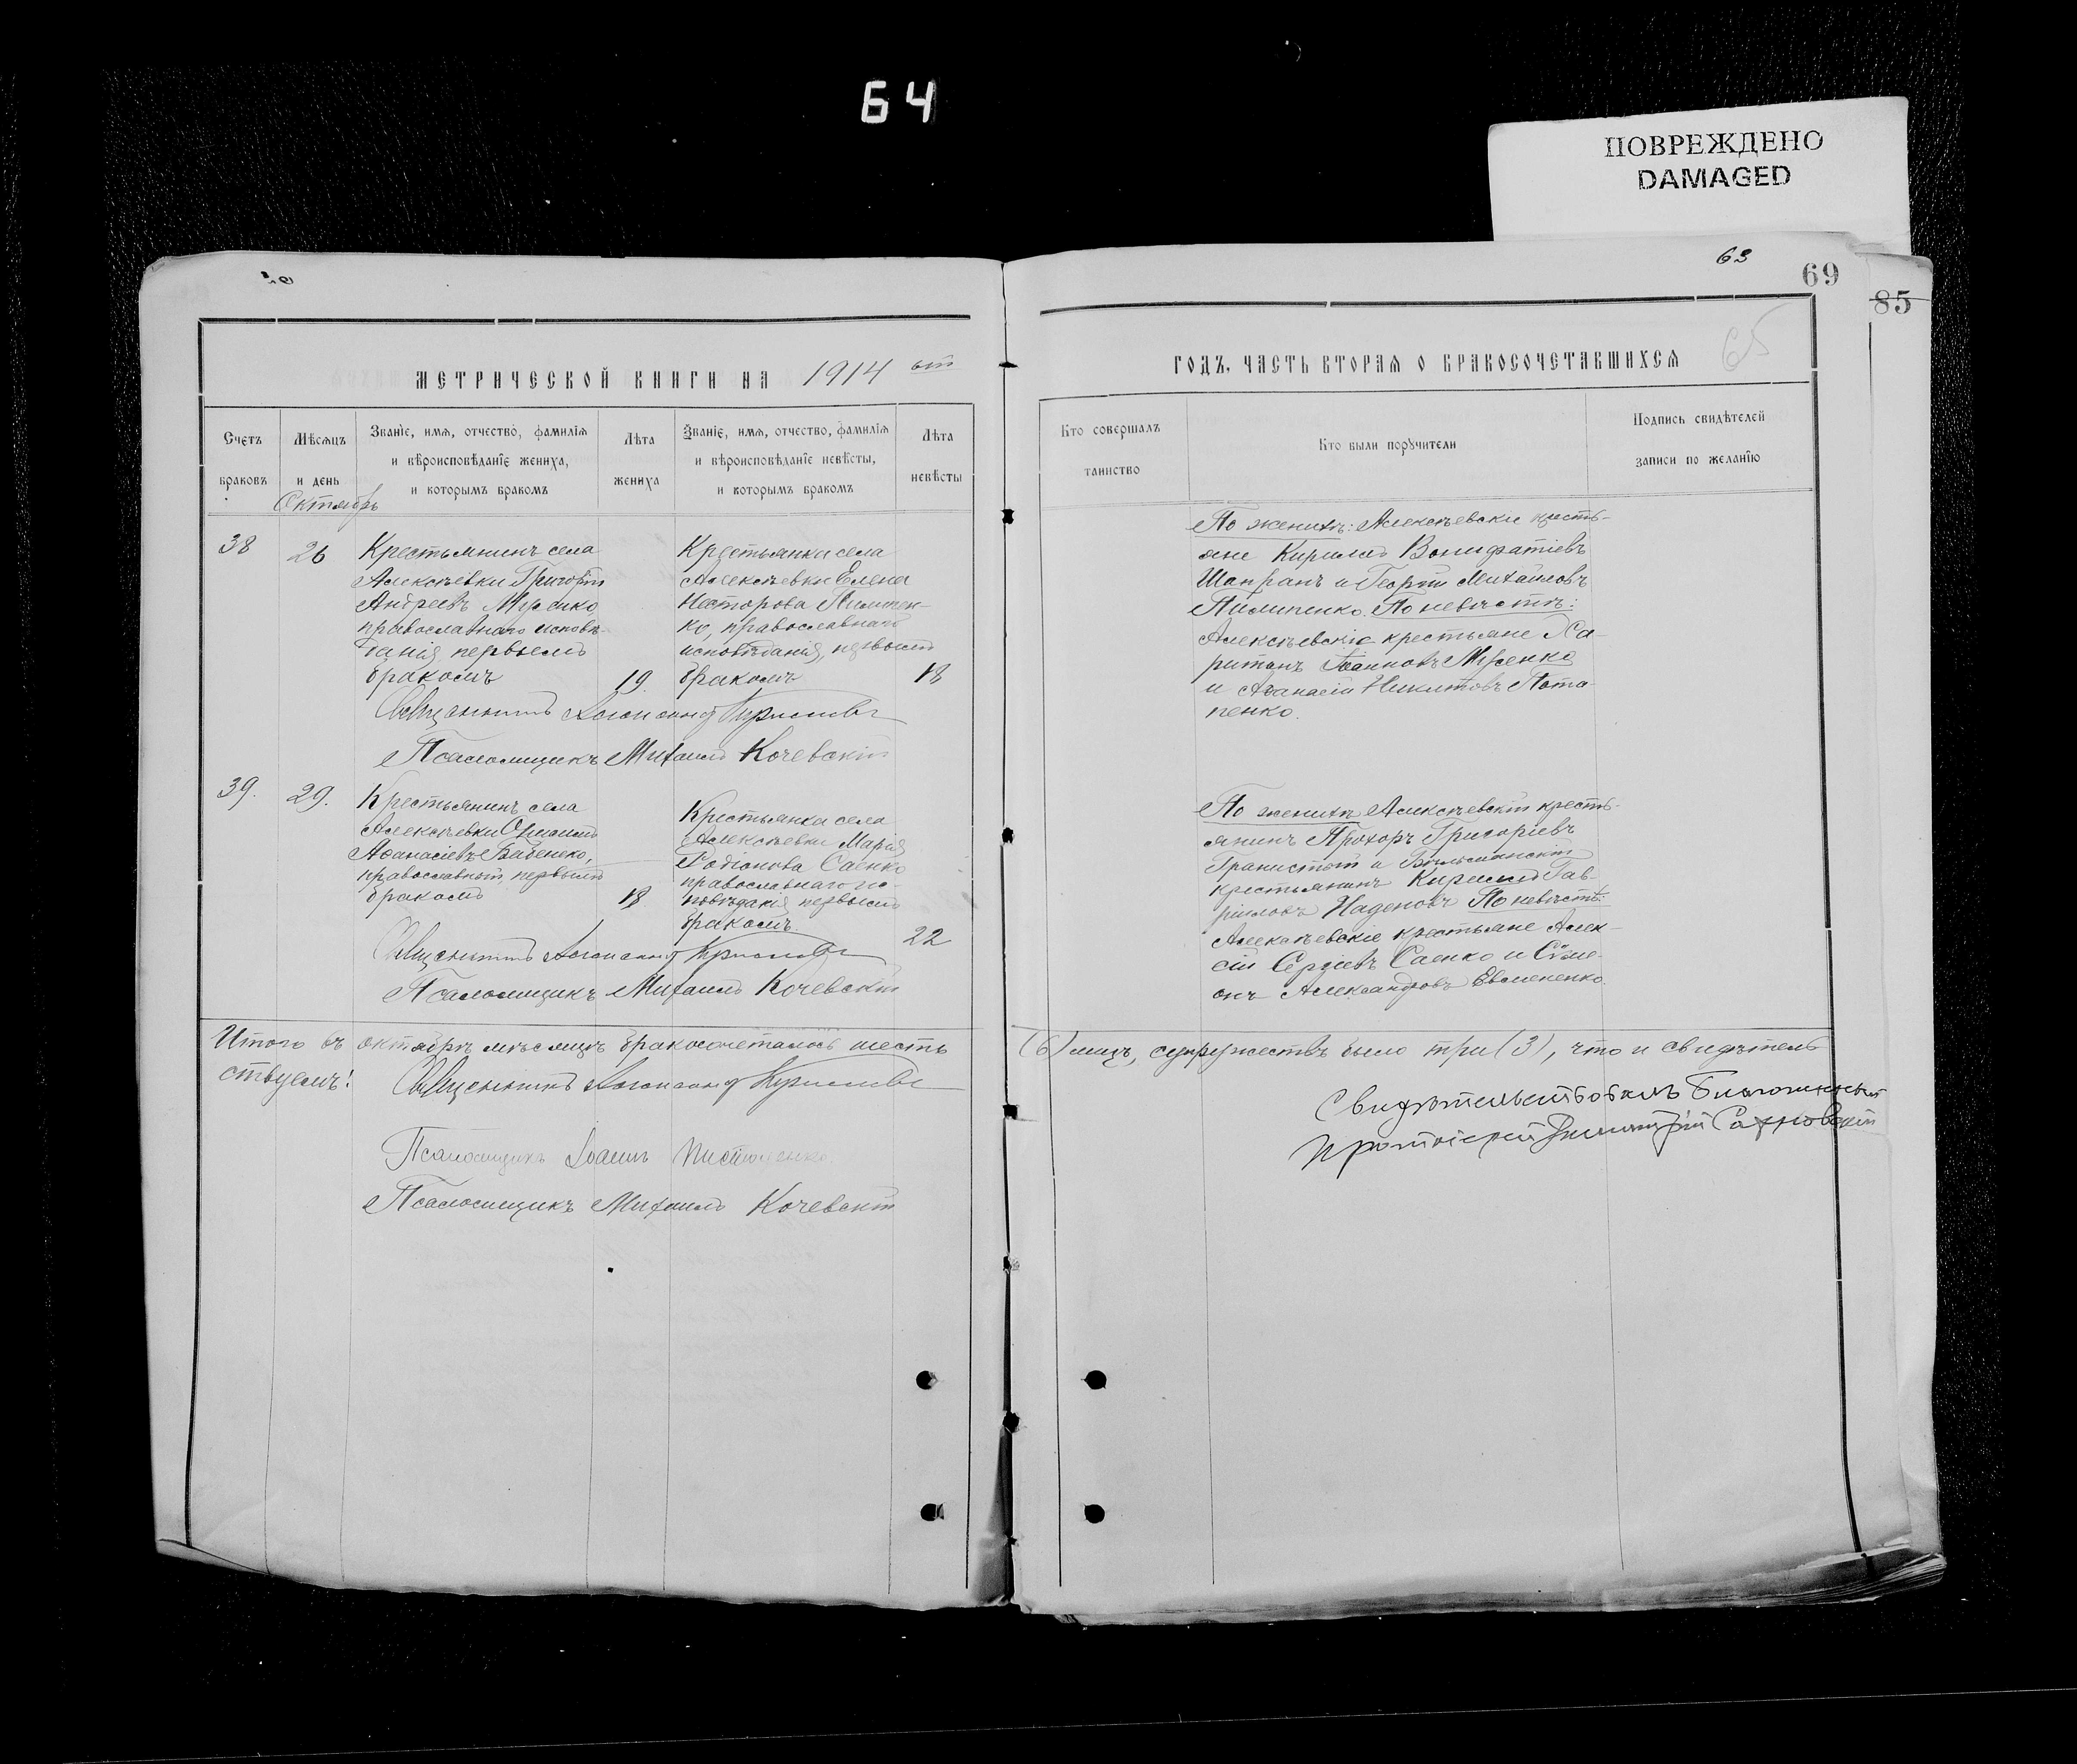 64
ПОВРЕЖДЕНО
DAMAGED
63
69
85
65
МЕТРИЧЕСКОЙ КНИГИ НА 1914 ый
ГОДЪ, ЧАСТЬ ВТОРАЯ О БРАКОСОЧЕТАВШИХСЯ
Счетъ браковъ
Мѣсяцъ и день
Званіе, имя, отчество, фамилія
и вѣроисповѣданіе жениха,
и которымъ бракомъ
Лѣта жениха
Званіе, имя, отчество, фамилія
и вѣроисповѣданіе невѣсты,
и которымъ бракомъ
Лѣта невѣсты
Кто совершалъ таинство
Кто были поручители
Подпись свидѣтелей
записи по желанію
Октябрь
38
26
Крестьянинъ села
Алексѣевки Григорій
Андреевъ Мусенко,
православнаго исповѣ-
данія, первымъ
бракомъ
19.
Крестьянка села
Алексѣевки Елена
Несторова Пилипен-
ко, православнаго
исповѣданія, первымъ
бракомъ
18
По женихѣ: Алексѣевскіе кресть-
яне Кириллъ Вонифатіевъ
Шапранъ и Георгій Михайловъ
Пилипенко. По невѣстѣ:
Алексѣевскіе крестьяне Ха-
ритонъ Іоанновъ Мусенко
и Аѳанасій Никитовъ Пота-
пенко.
Священникъ
Псаломщикъ Михаилъ Кочевскій
39.
29.
Крестьянинъ села
Алексѣевки
Аѳанасіевъ Бабенко,
православный, первымъ
бракомъ
18
Крестьянка села
Алексѣевки Марія
Родіонова Саенко
православнаго ис-
повѣданія первымъ
бракомъ.
22
По женихѣ Алексѣевскій кресть-
янинъ Прохоръ Григорьевъ
и
крестьянинъ Кириллъ Гав-
ріиловъ Наденовъ По невѣстѣ:
Алексѣевскіе крестьяне Алек-
сій Сергіевъ Саенко и Симе-
онъ Александровъ Евмененко.
Священникъ
Псаломщикъ Михаилъ Кочевскій
Итого въ октябрѣ мѣсяцѣ бракосочеталось шесть
(6) лицъ, супружествъ было три (3), что и свидѣтель
ствуемъ:
Священникъ
Псаломщикъ Іоаннъ
Псаломщикъ Михаилъ Кочевскій
Свидѣтельствовалъ Благочинный
протоіерей Димитрій